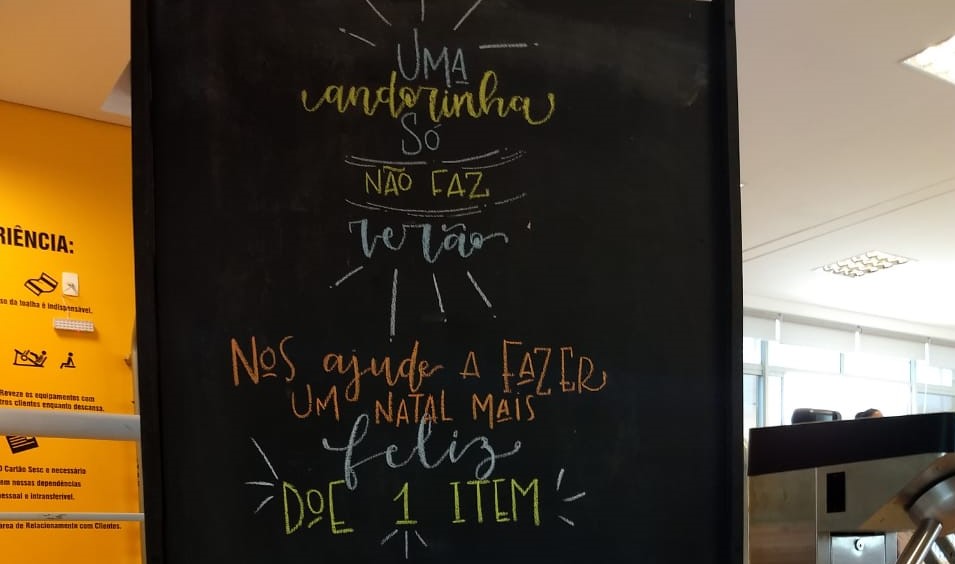 UMA
andorinha
SÓ
NÃO FAZ
verão
NOS ajude A FAZER
UM NATAL MAIS
feliz
DOE 1 ITEM
RIÊNCIA:
so da toalha é indispensável.
Reveze os equipamentos com
tros clientes enquanto descansa.
O Cartão Sesc é necessário
em nossas dependências
essoal e intransferível.
área de Relacionamento com Clientes.